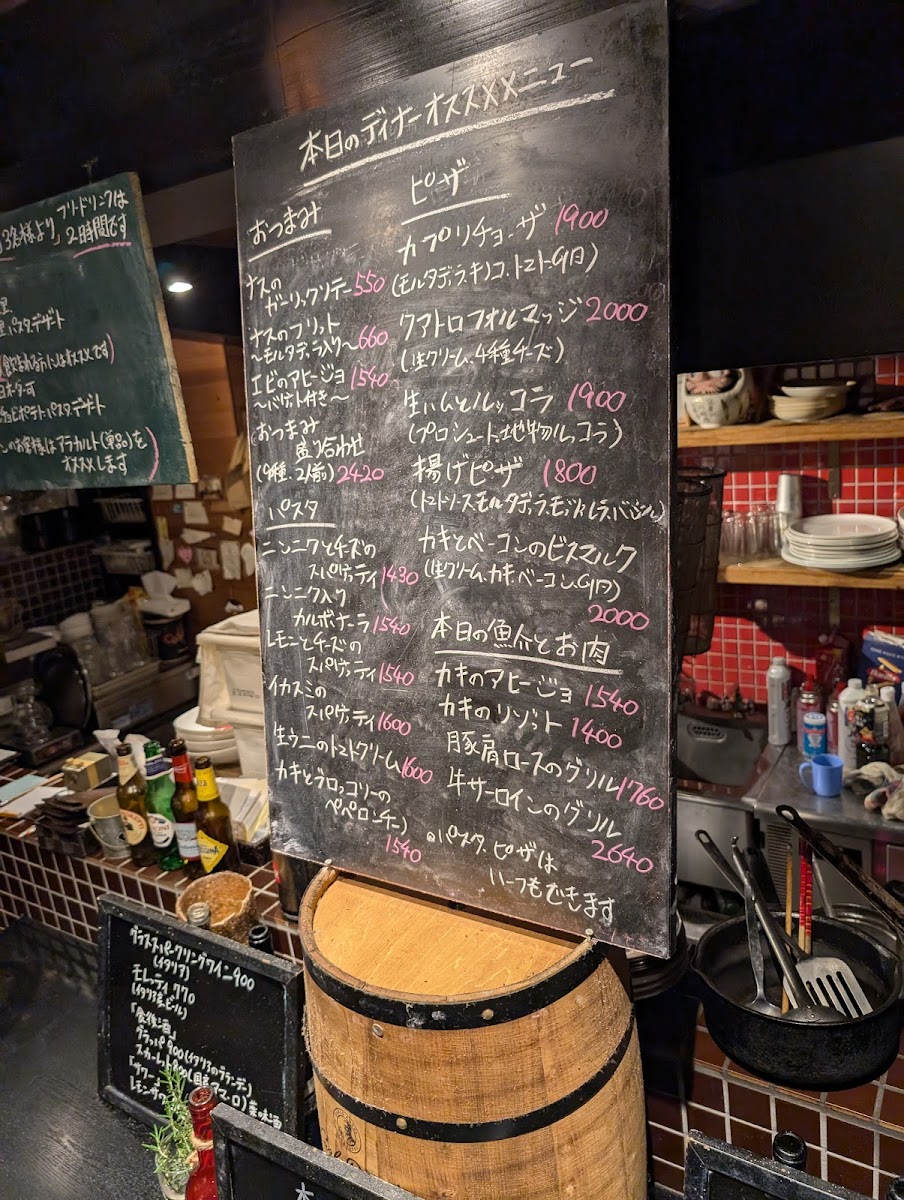 本日のディナーオススメメニュー
おつまみ
ナスの
ガーリックソテー 550
ナスのフリット
〜モルタデッラ入り〜 660
エビのアヒージョ 1540
〜バゲット付き〜
おつまみ
盛り合わせ
(9種、2人前) 2420
パスタ
ニンニクとチーズの
スパゲッティ 1430
ニンニク入り
カルボナーラ 1540
レモンとチーズの
スパゲッティ 1540
イカスミの
スパゲッティ 1600
生ウニのトマトクリーム 1600
カキとブロッコリーの
ペペロンチーノ
1540
ピザ
カプリチョーザ 1900
(モルタデッラ、キノコ、トマト、タマゴ)
クアトロフォルマッジ 2000
(生クリーム、4種チーズ)
生ハムとルッコラ 1900
(プロシュート、地物ルッコラ)
揚げピザ 1800
(トマトソース、モルタデッラ、モッツァレラ、バジル)
カキとベーコンのビスマルク
(生クリーム、カキ、ベーコン、タマゴ)
2000
本日の魚介とお肉
カキのアヒージョ 1540
カキのリゾット 1400
豚肩ロースのグリル 1760
牛サーロインのグリル
2640
◎パスタ、ピザは
いつもできます
3名様より」フリードリンクは
2時間です
パスタデザート
ポテトパスタデザート
お客様はアラカルト(単品)を
オススメします
グラススパークリングワイン 900
(イタリア)
モレッティ 770
(イタリア産ビール)
「食後酒」
グラッパ 900 (イタリアのブランデー)
スカーレット 800 (国産アマーロ) 薬味酒
「サワー
レモンサワー
本